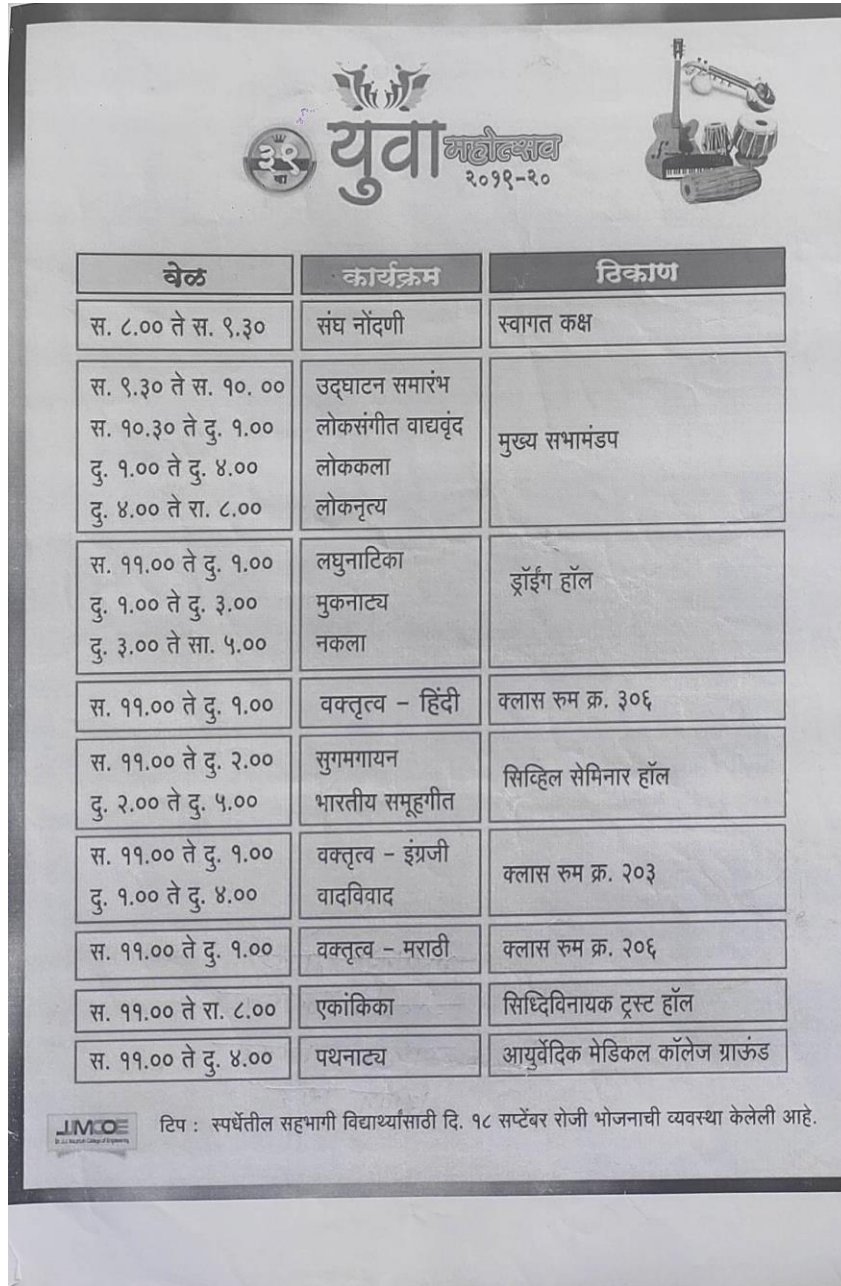 ३९
वा
युवा महोत्सव
२०१९-२०
वेळ कार्यक्रम ठिकाण
स. ८.०० ते स. ९.३० संघ नोंदणी स्वागत कक्ष
स. ९.३० ते स. १०. ०० उद्‌घाटन समारंभ
स. १०.३० ते दु. १.०० लोकसंगीत वाद्यवृंद
मुख्य सभामंडप
दु. १.०० ते दु. ४.०० लोककला
दु. ४.०० ते रा. ८.०० लोकनृत्य
स. ११.०० ते दु. १.०० लघुनाटिका
ड्रॉईंग हॉल
दु. १.०० ते दु. ३.०० मुकनाट्य
दु. ३.०० ते सा. ५.०० नकला
स. ११.०० ते दु. १.०० वक्तृत्व – हिंदी क्लास रुम क्र. ३०६
स. ११.०० ते दु. २.०० सुगमगायन
सिव्हिल सेमिनार हॉल
दु. २.०० ते दु. ५.०० भारतीय समूहगीत
स. ११.०० ते दु. १.०० वक्तृत्व – इंग्रजी
क्लास रुम क्र. २०३
दु. १.०० ते दु. ४.०० वादविवाद
स. ११.०० ते दु. १.०० वक्तृत्व – मराठी क्लास रुम क्र. २०६
स. ११.०० ते रा. ८.०० एकांकिका सिध्दिविनायक ट्रस्ट हॉल
स. ११.०० ते दु. ४.०० पथनाट्य आयुर्वेदिक मेडिकल कॉलेज ग्राऊंड
टिप : स्पर्धेतील सहभागी विद्यार्थ्यांसाठी दि. १८ सप्टेंबर रोजी भोजनाची व्यवस्था केलेली आहे.